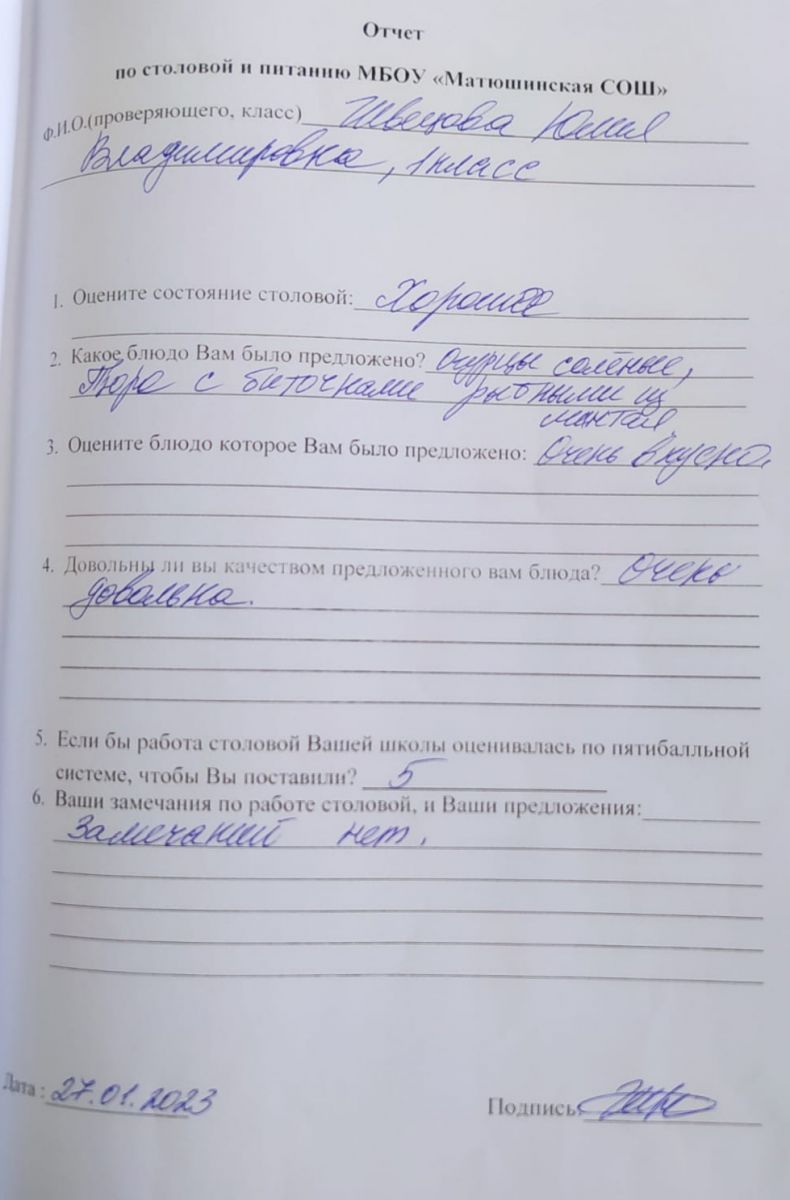 Отчет
по столовой и питанию МБОУ «Матюшинская СОШ»
Ф.И.О.(проверяющего, класс) Швецова Юлия
Владимировна, 1 класс
1. Оцените состояние столовой: Хорошее
2. Какое блюдо Вам было предложено? огурцы солёные,
Пюре с биточками рыбными из
минтая.
3. Оцените блюдо которое Вам было предложено: Очень вкусно.
4. Довольны ли вы качеством предложенного вам блюда? Очень
довольна.
5. Если бы работа столовой Вашей школы оценивалась по пятибалльной
системе, чтобы Вы поставили? 5
6. Ваши замечания по работе столовой, и Ваши предложения:
Замечаний нет.
Дата: 27.01.2023
Подпись: